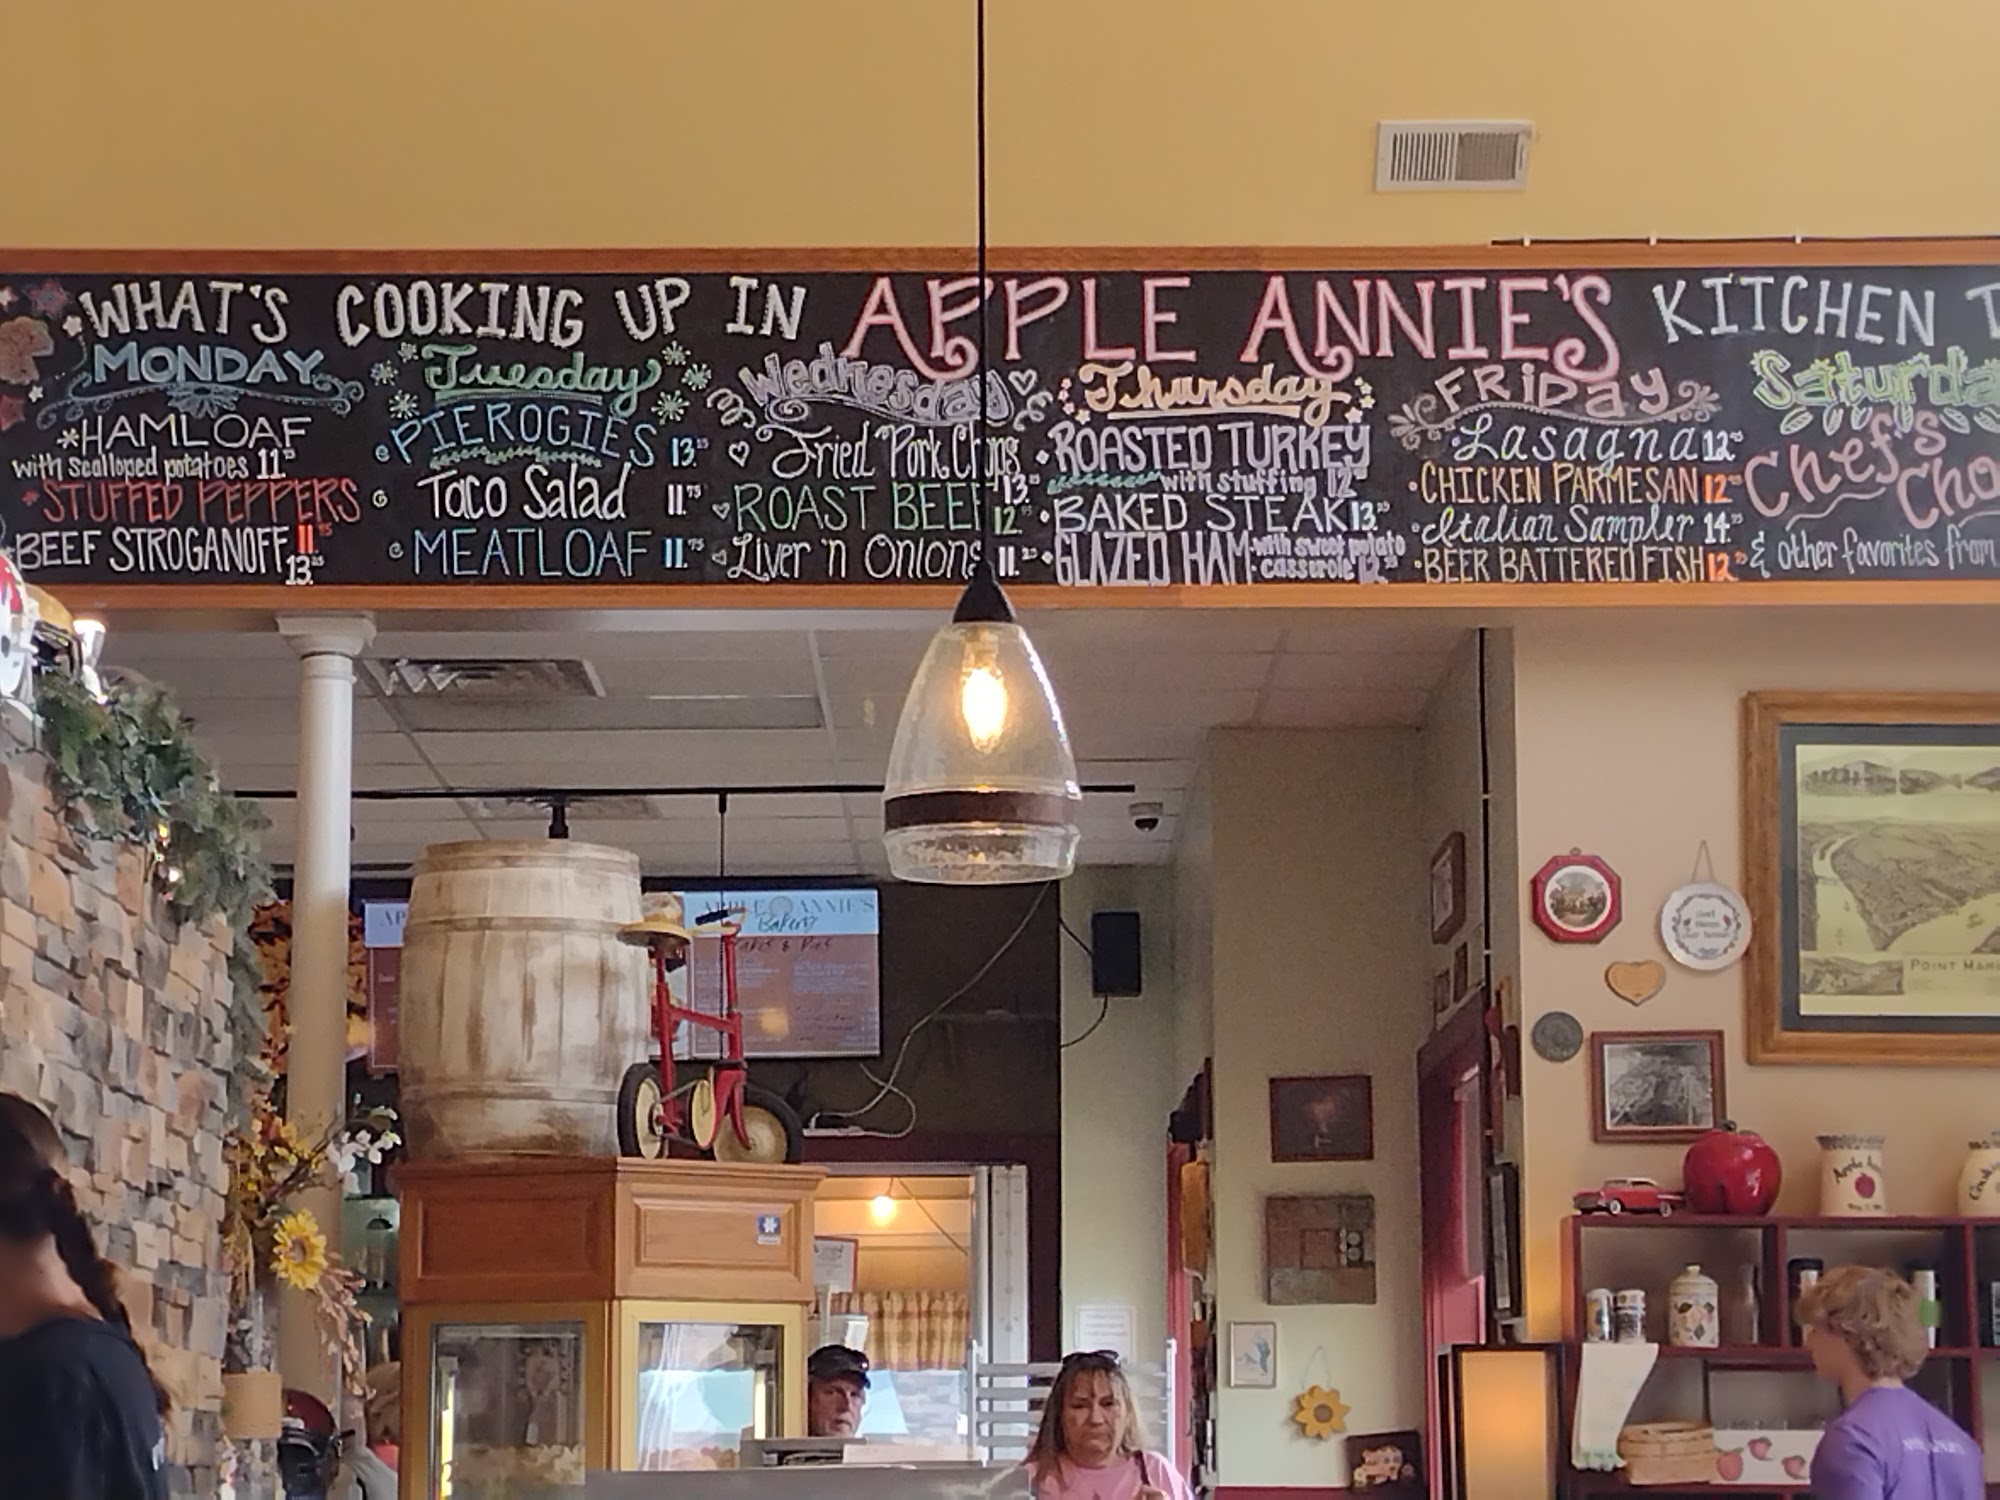 WHAT'S COOKING UP IN APPLE ANNIE'S KITCHEN
MONDAY
*HAMLOAF
with scalloped potatoes 11.
*STUFFED PEPPERS
11.
BEEF STROGANOFF
13.
Tuesday
PIEROGIES 13.
Taco Salad 11.75
MEATLOAF 11.75
Wednesday
Fried Pork Chops
13.
ROAST BEEF 12.
Liver 'n Onions 11.
Thursday
ROASTED TURKEY
with stuffing 12
BAKED STEAK 13.
GLAZED HAM with sweet potato
casserole 12
FRiDay
Lasagna 12
CHICKEN PARMESAN 12
Italian Sampler 14.
BEER BATTERED FISH 12
Saturda
Chef's
Cho
& other favorites from
APPLE ANNIE'S
Bakery
POINT MAR
Apple Ann